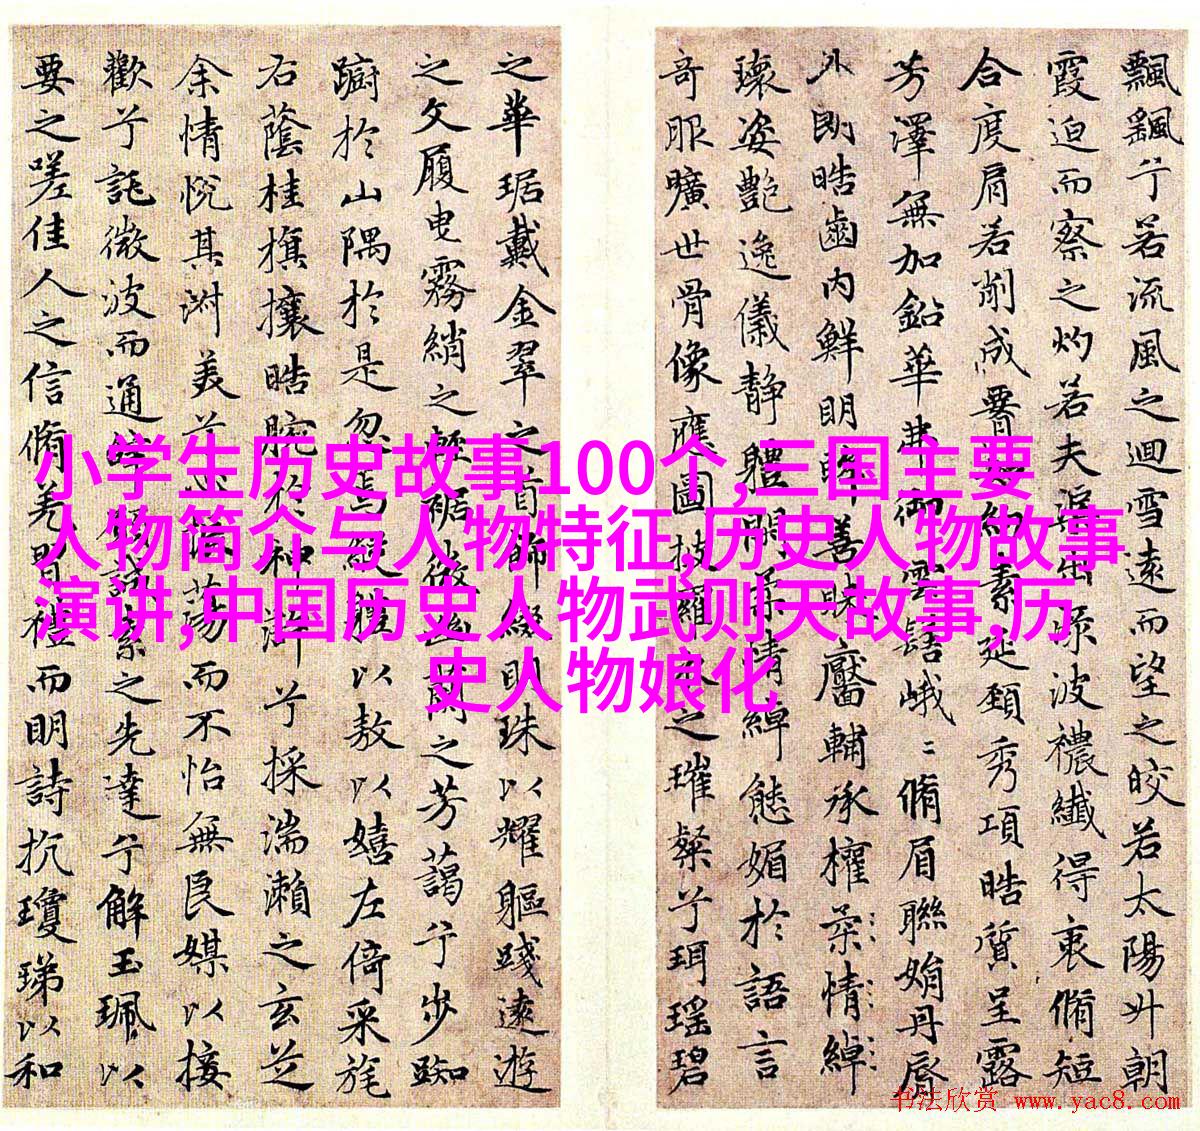 飄飖兮若流風之迴雪遠而望之皎若太陽升朝
霞迫而察之灼若夫渠出淥波禯纖得衷脩短
合度肩若削成素延頸秀項皓質呈露
芳澤無加鉛華弗御雲髻峨〻脩眉聯娟丹脣
外朗皓齒內鮮明眸善睞靨輔承權柔情綽
瓌姿艷逸儀靜體閒柔情綽態媚於語言
奇服曠世骨像應圖披羅衣之璀粲兮珥瑤碧
之華琚戴金翠之首飾綴明珠以耀軀踐遠遊
之文履曳霧綃之輕裾微幽蘭之芳藹兮步踟
躕於山隅於是忽焉縱體以敖以嬉左倚采旄
右蔭桂旗攘皓腕於神滸兮採湍瀨之玄芝
余情悅其淑美兮振蕩而不怡無良媒以接
歡兮託微波而通素之先達兮解玉珮以
要之嗟佳人之信脩羌習禮而明詩抗瓊珶以和
小学生历史故事100个,三国主要
人物简介与人物特征,历史人物故事
演讲,中国历史人物武则天故事,历
史人物娘化
书法欣赏 www.yac8.com